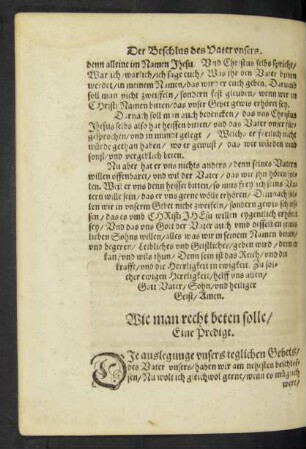 Der Beschlus des Vater vnsers.
denn alleine im Namen Jhesu. Vnd Christus selbs spricht/
War ich/ warlich/ ich sage euch/ Was jhr den Vater bitten
werdet/ in meinem Namen/ das wirt er euch geben. Darumb
soll man nicht zweiffeln/ sondern fest gleuben/ wenn wir in
CHristi Namen bitten/ das vnser Gebet gewis erhöret sey.
Darnach soll man auch bedencken/ das vns Christus
Jhesus selbs also hat heissen bitten/ vnd das Vater vnser für
gesprochen/ vnd in mund gelegt/ Welchs er freilich nicht
würde gethan haben/ wo er gewust/ das wir würden vmb
sonst/ vnd vergeblich beten.
Nu aber hat er vns nichts anders/ denn seines Vatern
willen offenbaret/ vnd wil der Vater/ das wir jhn hören sol-
len. Weil er vns denn heisset bitten/ so mus es ja seins Va-
tern wille sein/ das er vns gerne wölle erhören. Darumb sol-
len wir in vnserm Gebet nicht zweifeln/ sondern gewis schlies-
sen/ das es vmb CHRisti JHEsu willen eigentlich erhöret
sey/ Vnd das vns Gott der Vater auch vmb desselben seines
lieben Sohns willen/ alles was wir in seinem Namen bitten/
vnd begeren/ Leibliches vnd Geistliches/ geben wird/ denn er
kan/ vnd wils thun/ Denn sein ist das Reich/ vnd die
krafft/ vnd die Herrligkeit in ewigkeit. Zu sol-
cher ewigen Herrligkeit/ helff vns allen/
Gott Vater/ Sohn/ vnd heiliger
Geist/ Amen.
Wie man recht beten solle/
Eine Predigt.
DJe auslegunge vnsers teglichen Gebets/
des Vater vnsers/ haben wir am nehesten beschlos-
sen/ Nu wolt ich gleichwol gerne/ wenn es müglich
were/